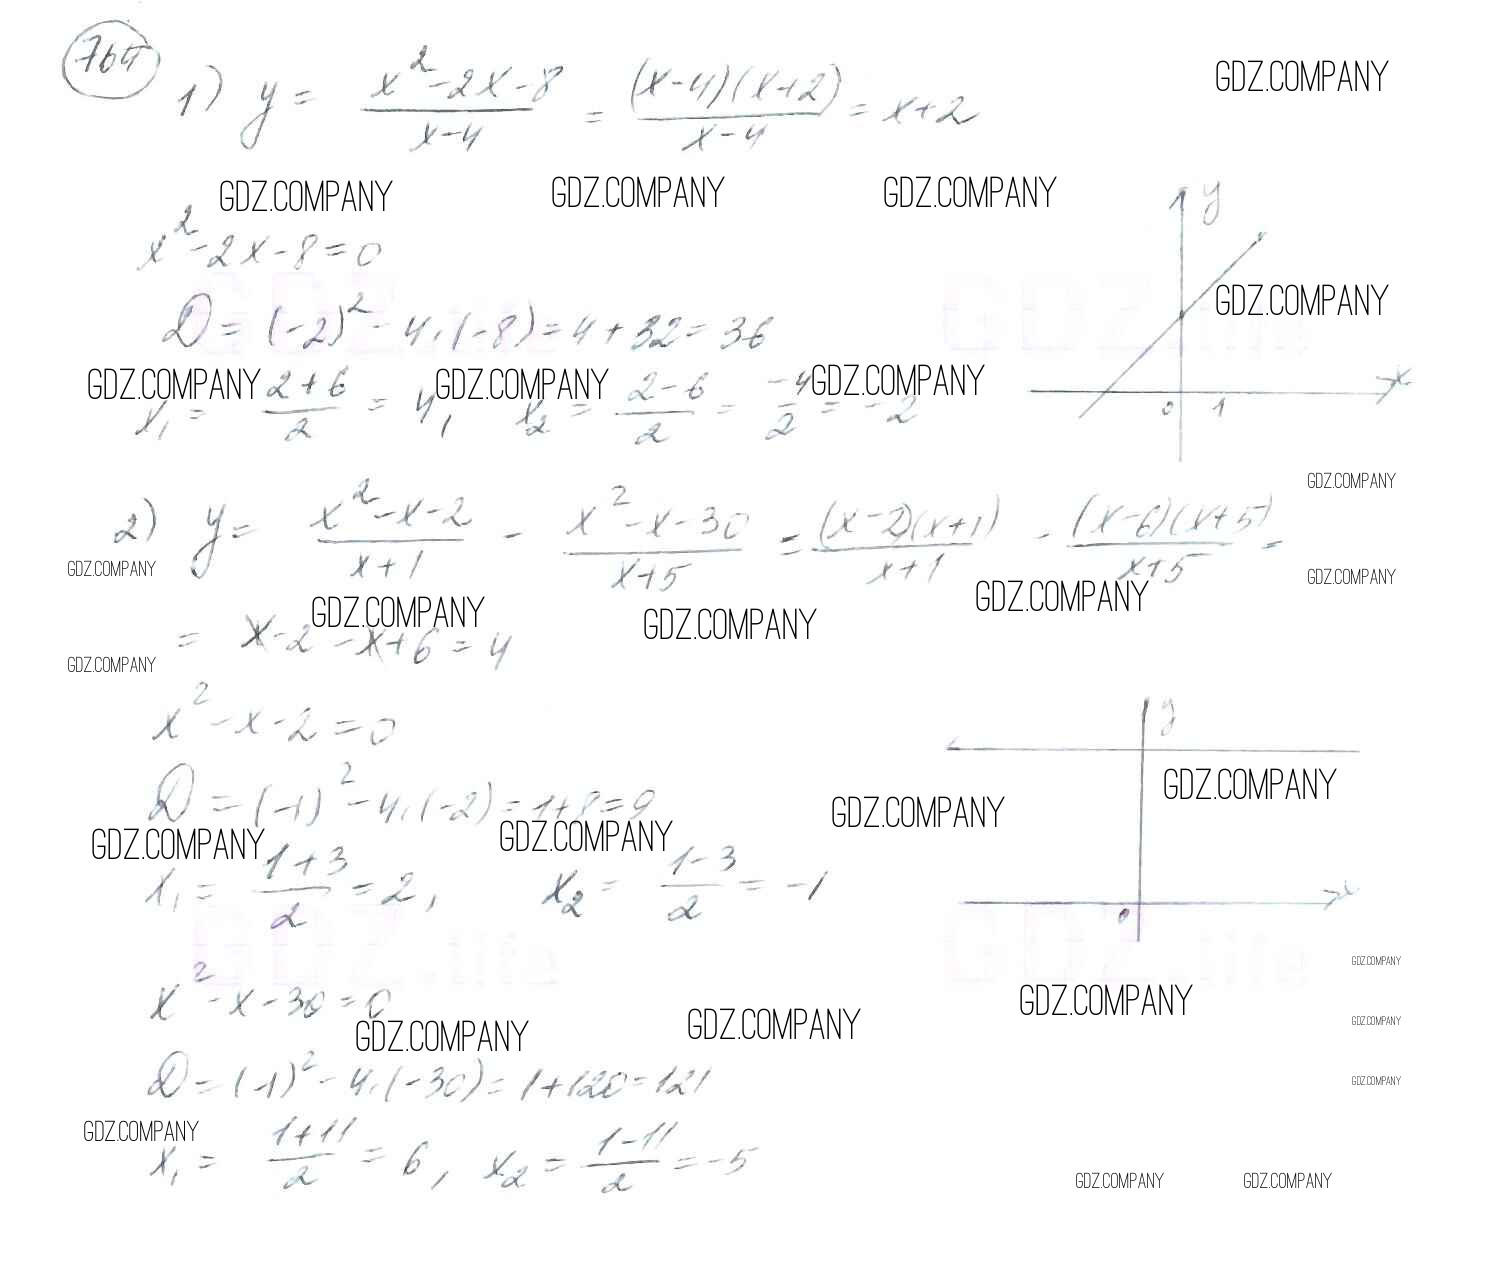 764
1) y = (x² - 2x - 8)/(x - 4) = ((x - 4)(x + 2))/(x - 4) = x + 2
GDZ.COMPANY
GDZ.COMPANY GDZ.COMPANY GDZ.COMPANY
y
x² - 2x - 8 = 0
GDZ.life GDZ.life
GDZ.COMPANY
D = (-2)² - 4·(-8) = 4 + 32 = 36
GDZ.COMPANY GDZ.COMPANY GDZ.COMPANY
x
x₁ = (2 + 6)/2 = 4, x₂ = (2 - 6)/2 = -4/2 = -2
0 1
GDZ.COMPANY
2) y = (x² - x - 2)/(x + 1) - (x² - x - 30)/(x + 5) = ((x - 2)(x + 1))/(x + 1) - ((x - 6)(x + 5))/(x + 5) =
GDZ.COMPANY GDZ.COMPANY
GDZ.COMPANY GDZ.COMPANY GDZ.COMPANY
= x - 2 - x + 6 = 4
GDZ.COMPANY
x² - x - 2 = 0
y
D = (-1)² - 4·(-2) = 1 + 8 = 9
GDZ.COMPANY GDZ.COMPANY GDZ.COMPANY GDZ.COMPANY
x₁ = (1 + 3)/2 = 2, x₂ = (1 - 3)/2 = -1
x
0
GDZ.life GDZ.life
GDZ.COMPANY
x² - x - 30 = 0
GDZ.COMPANY GDZ.COMPANY GDZ.COMPANY GDZ.COMPANY
D = (-1)² - 4·(-30) = 1 + 120 = 121
GDZ.COMPANY
GDZ.COMPANY
x₁ = (1 + 11)/2 = 6, x₂ = (1 - 11)/2 = -5
GDZ.COMPANY GDZ.COMPANY